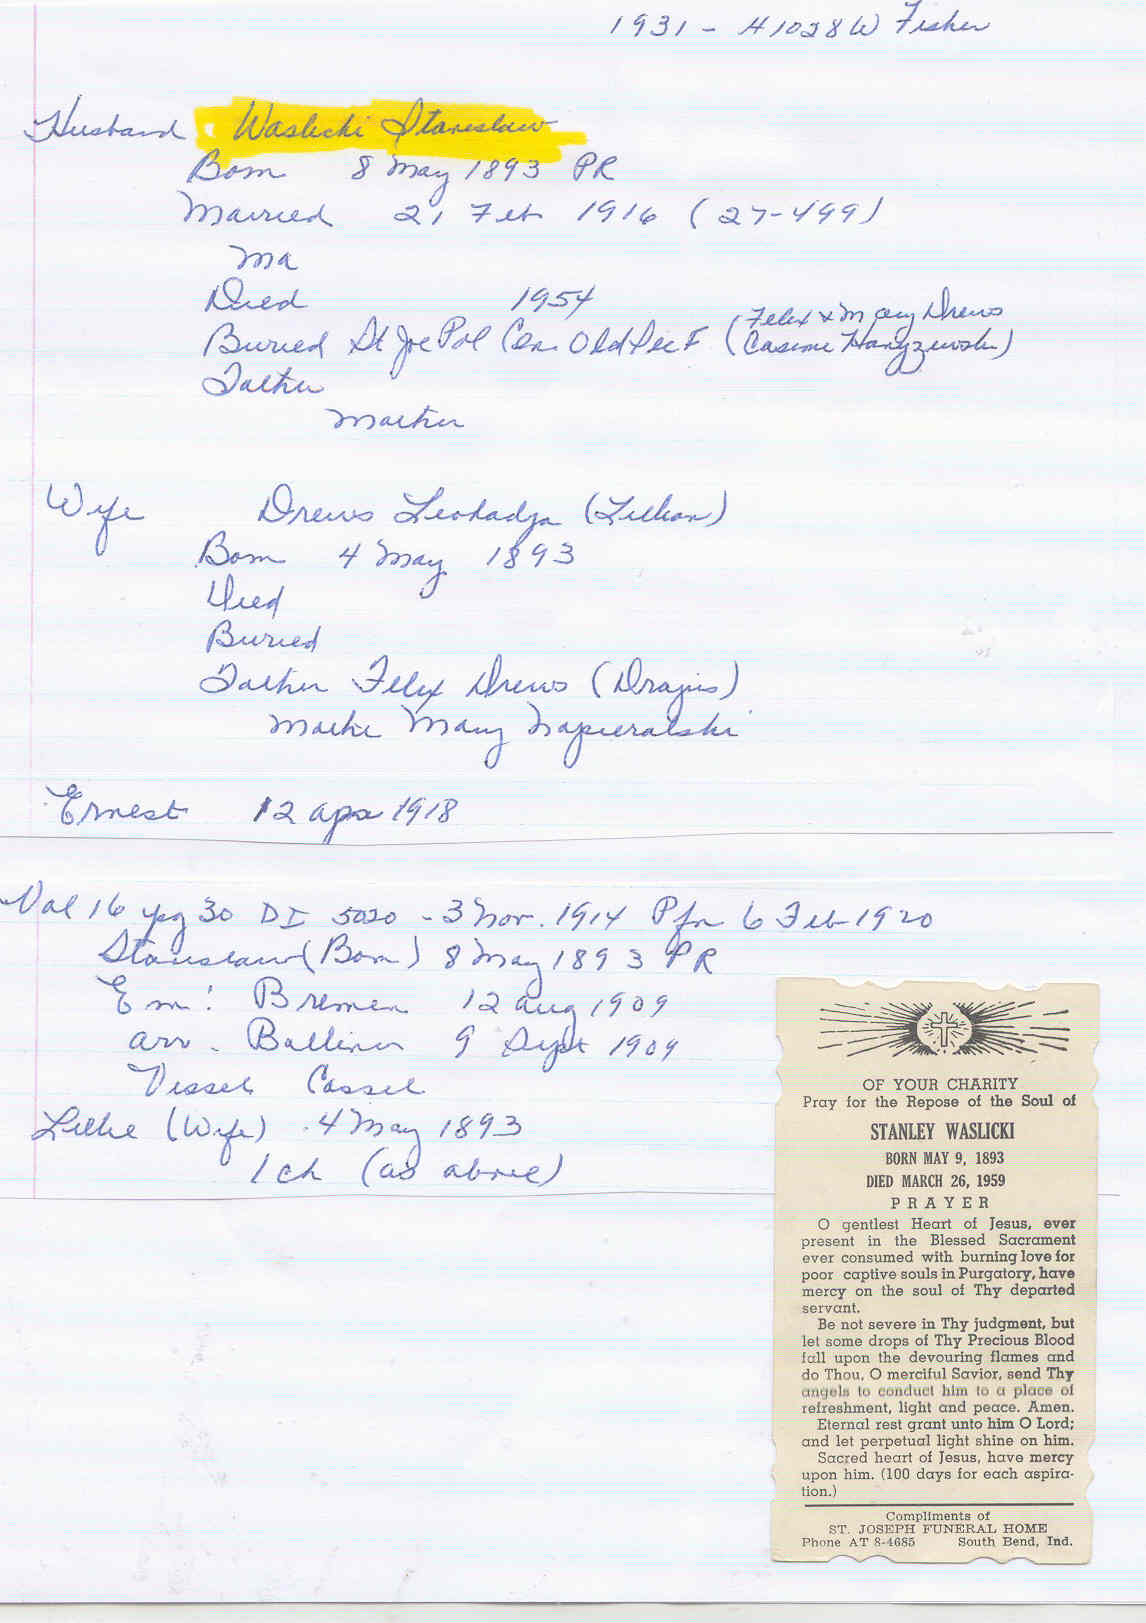 1931 - H1028 W Fisher
Husband Waslicki Stanislaw
Born 8 May 1893 PR
Married 21 Feb 1916 (27-499)
Ma
Died 1954
Buried St Joe Pol Cem Old Sec F (Felix & Mary Drews
Casimer )
Father
Mother
Wife Drews Leokadja (Lillian)
Born 4 May 1893
Died
Buried
Father Felix Drews (Drajus)
Mother Mary Napieralski
Ernest 12 Apr 1918
Vol 16 pg 30 DI 5020 - 3 Nov. 1914 P fn 6 Feb 1920
Stanislaw (Born) 8 May 1893 PR
Em: Bremen 12 Aug 1909
arr. Baltimor 9 Sept 1909
Vessel Cassel
Lillie (Wife) 4 May 1893
1 ch (as above)
OF YOUR CHARITY
Pray for the Repose of the Soul of
STANLEY WASLICKI
BORN MAY 9, 1893
DIED MARCH 26, 1959
PRAYER
O gentlest Heart of Jesus, ever
present in the Blessed Sacrament
ever consumed with burning love for
poor captive souls in Purgatory, have
mercy on the soul of Thy departed
servant.
Be not severe in Thy judgment, but
let some drops of Thy Precious Blood
fall upon the devouring flames and
do Thou, O merciful Savior, send Thy
angels to conduct him to a place of
refreshment, light and peace. Amen.
Eternal rest grant unto him O Lord;
and let perpetual light shine on him.
Sacred heart of Jesus, have mercy
upon him. (100 days for each aspira-
tion.)
Compliments of
ST. JOSEPH FUNERAL HOME
Phone AT 8-4685 South Bend, Ind.